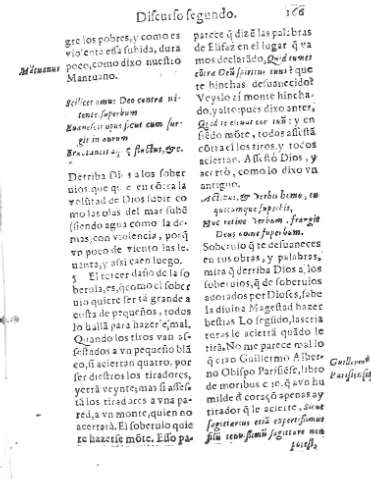 Discurso segundo. 166
gre los pobres, y como es
violenta essa subida, dura
poco, como dixo nuestro
Mantuano.
Mãtuanus
Scilicet omne Deo contra ni-
tente superbum
Euanescit opus sicut cum sur-
git in auram
& c.
Derriba Di s a los sober
uios que que en cõtra la
volũtad de Dios subir co
mo las olas del mar subẽ
(siendo agua como la de-
mas, con violencia, porq̃
vn poco de viento las le-
uanta, y assi caen luego.
5 El tercer daño de la so
beruia, es, q̃ como el sober
uio quiere ser tã grande a
costa de pequeños, todos
lo hallã para hazer e, mal.
Quando los tiros van as-
sestados a vn pequeño blã
co, si aciertan quatro, por
ser diestros los tiradores,
yerrã veynte; mas si asses-
tã los tiradores a vna pa-
red, a vn monte, quien no
acertarà. El soberuio quie
re hazerse mõte. Esso pa-
parece q̃ dizẽ las palabras
de Elifaz en el lugar q̃ va
mos declarãdo, Quid tumes
cõtra Deũ spiritus tuus? que
te hinchas desuanecido?
Veyslo aî monte hincha-
do, y altopues dixo antes,
Quid te eleuat cor tuũ: y en
siẽdo mõte, todos assistã
cõtra el los tiros, y todos
aciertan. Assestò Dios, y
acertò, como lo dixo vn
antiguo.
Actibus, & verbis homo, tu
quicumque superbis,
Hoc retine verbum, frangit
Deus omne superbum.
Soberuio q̃ te desuaneces
en tus obras, y palabras,
mira q̃ derriba Dios a, los
soberuios, q̃ de soberuios
adorados por Dioses, sabe
la diuina Magestad hazer
bestias Lo segũdo, las cria
turas le acierrã quãdo le
tirã. No me parece mal lo
q̃ dixo Guillermo Alber-
no Obispo Parisiẽse, libro
de moribus c 10. q̃ a vn hu
milde de coraçõ apenas ay
tirador q̃ le acierte, Sicut
sagittarius etiã expertissimus
filũ tenuissimũ sagittare non
potest,
Guillerm⁹
Parisiẽsis.